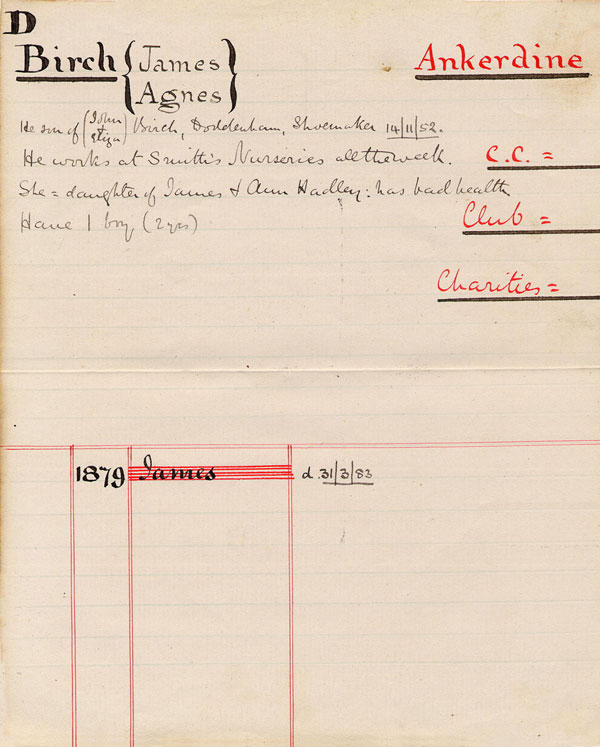 D
Birch { James Agnes }
Ankerdine
He son of (John Eliza) Birch, Doddenham, Shoemaker 14/11/52.
He works at Smith's Nurseries all the week.
C.C. =
She = daughter of James & Ann Hadley: has bad health
Club =
Have 1 boy (2 yrs)
Charities =
1879 James d. 31/3/83